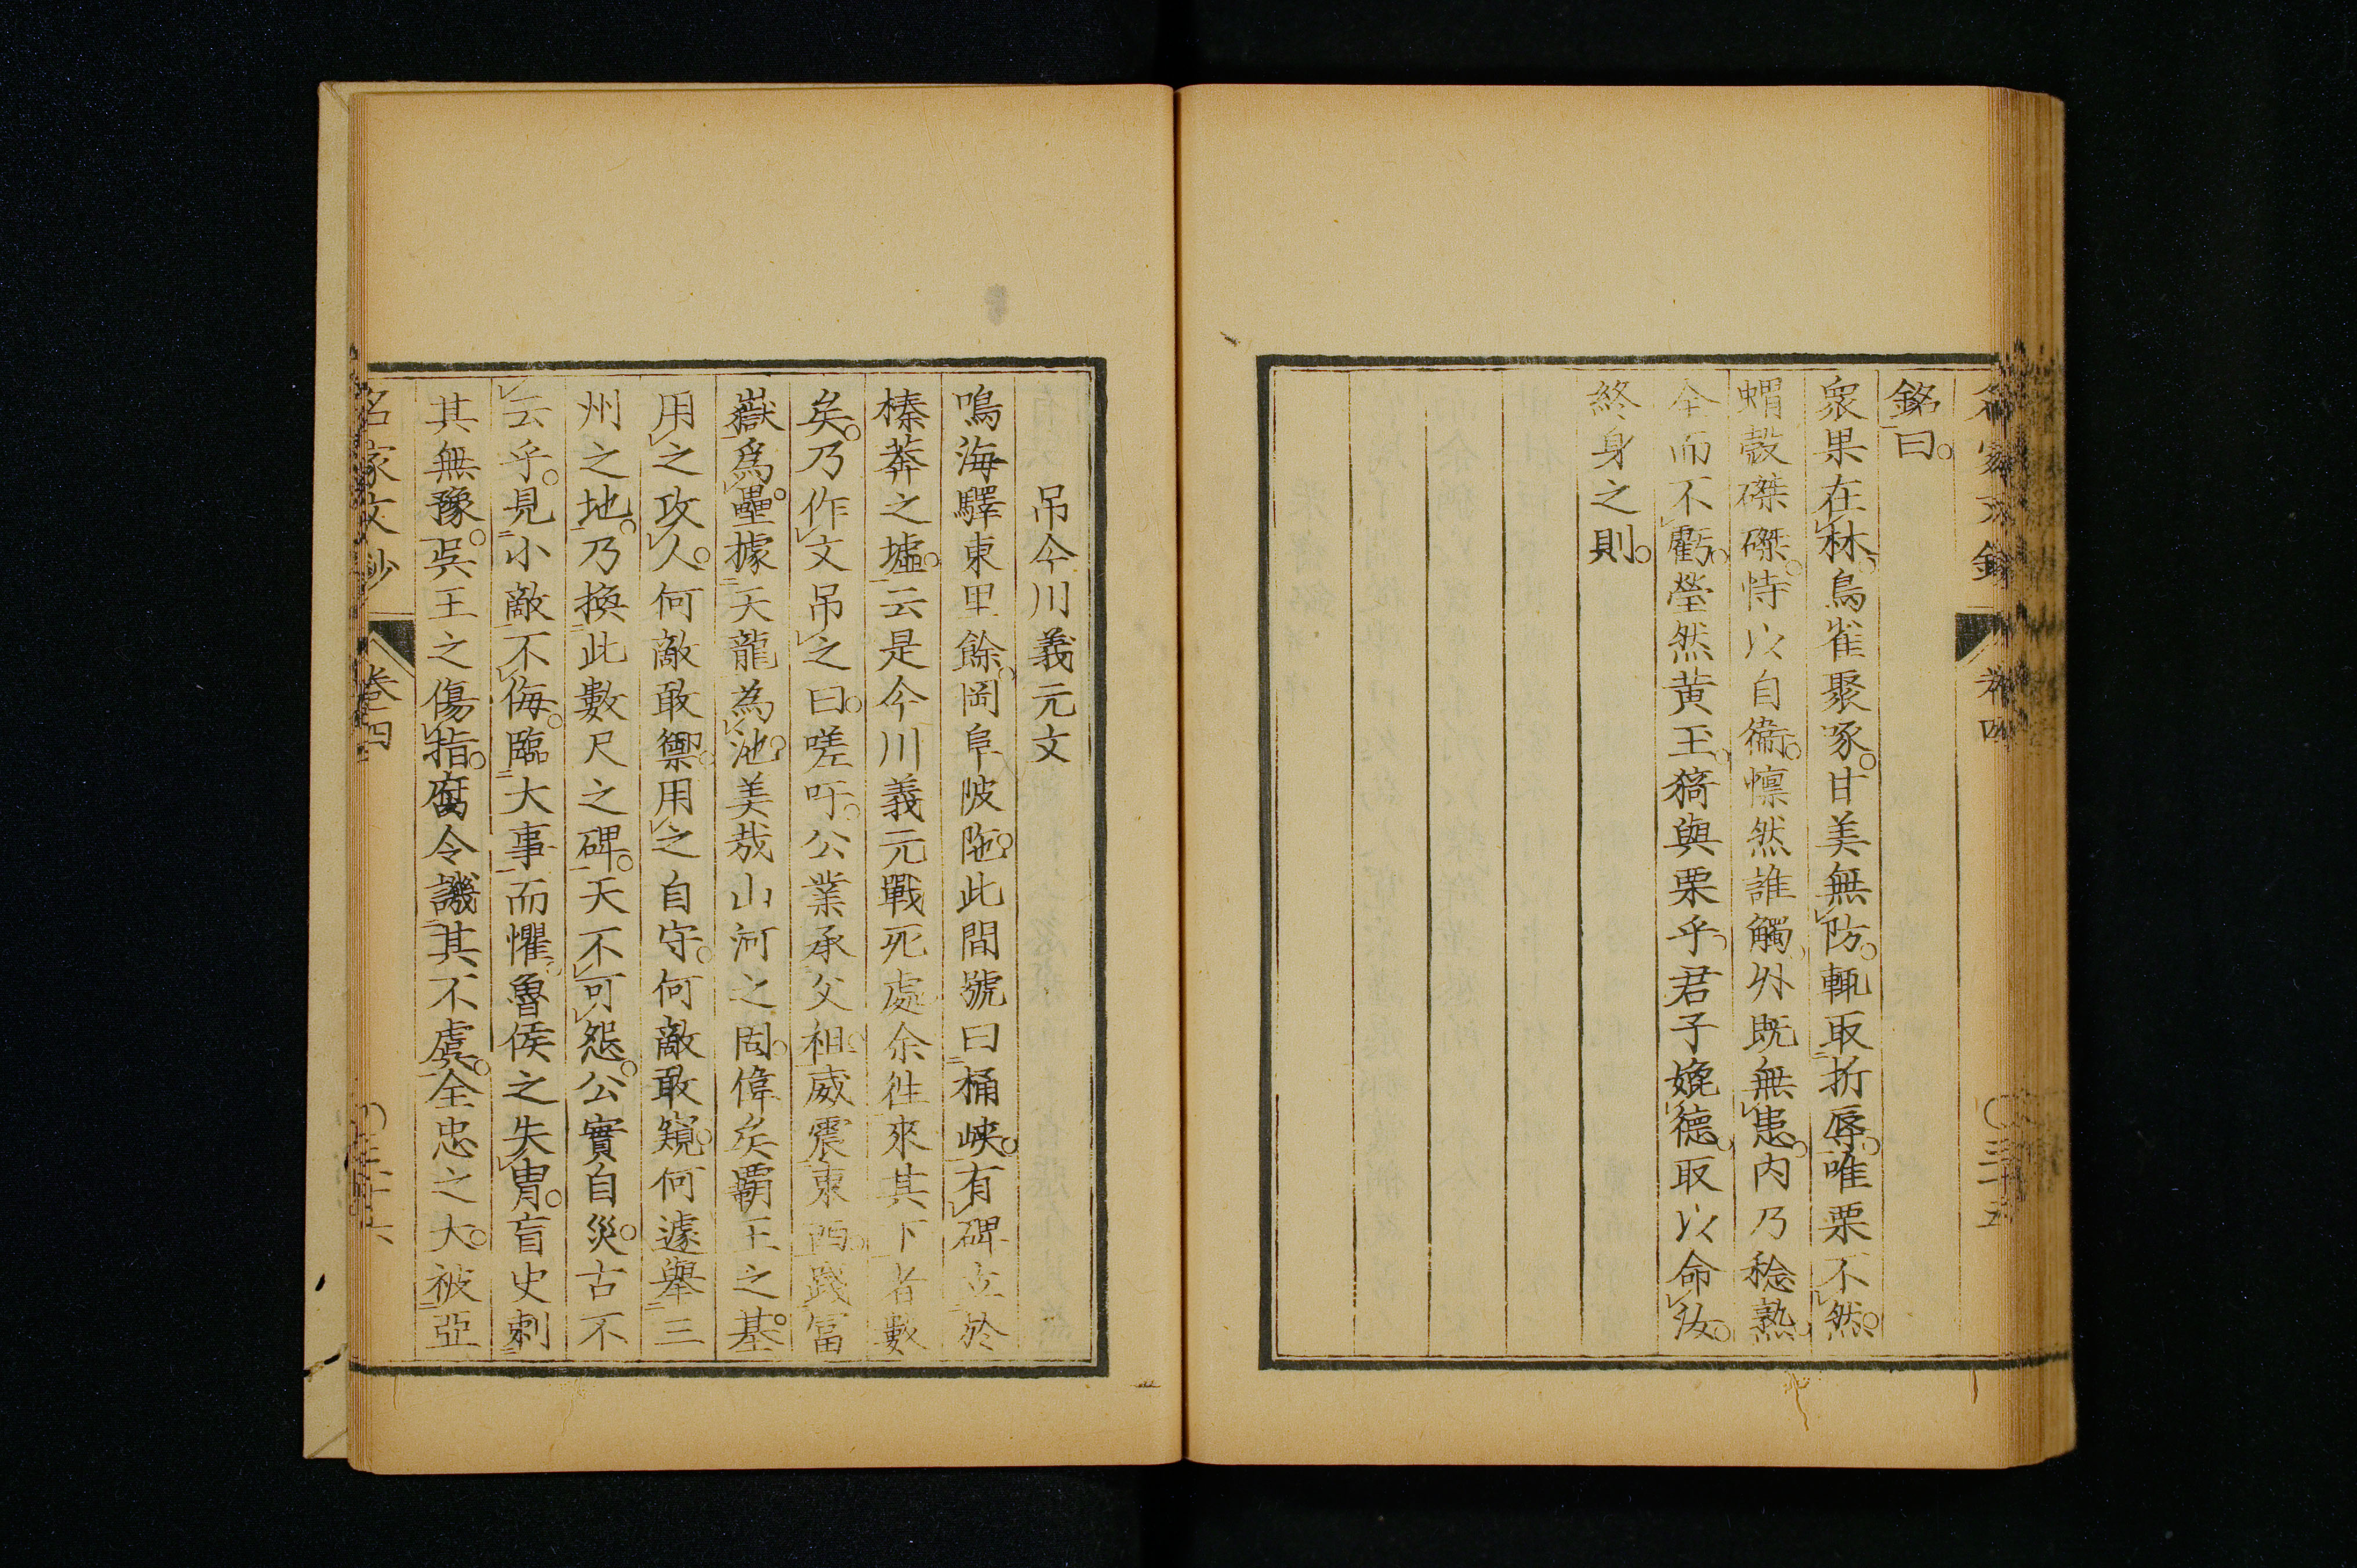 銘曰。
衆果在林。鳥雀聚啄。甘美無防。輒取折辱。唯栗不然。
蝟殼磔磔。恃以自衞。懍然誰觸。外既無患。內乃稔熟。
全而不虧。瑩然黄玉。猗與栗乎。君子媲德。取以命汝。
終身之則。
名家文鈔 卷四 〇三十五
吊今川義元文
鳴海驛東里餘。岡阜陂陁。此間號曰桶峽。有碑立於
榛莽之墟。云是今川義元戰死處。余徃來其下者數
矣。乃作文吊之曰。嗟吁。公業承父祖。威震東西。踐富
嶽爲壘。據天龍為池。美哉山河之固。偉矣覇王之基。
用之攻人。何敵敢禦。用之自守。何敵敢窺。何遽舉三
州之地。乃換此數尺之碑。天不可怨。公實自災。古不
云乎。見小敵不侮。臨大事而懼。魯侯之失冑。盲史刺
其無豫。吳王之傷指。腐令譏其不虞。全忠之大。被亞
名家文鈔 卷四 〇三十六